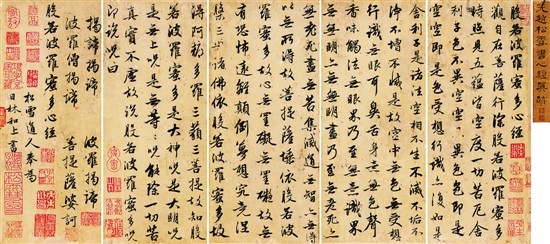 元趙松雪書心經真跡
般若波羅蜜多心經
觀自在菩薩行深般若波羅蜜多
時照見五蘊皆空度一切苦厄舍
利子色不異空空不異色色即是
空空即是色受想行識亦復如是
舍利子是諸法空相不生不滅不垢不
淨不增不減是故空中無色無受想
行識無眼耳鼻舌身意無色聲
香味觸法無眼界乃至無意識界
無無明亦無無明盡乃至無老死亦
無老死盡無苦集滅道無智亦無得
以無所得故菩提薩埵依般若波
羅蜜多故心無罣礙無罣礙故無
有恐怖遠離顛倒夢想究竟涅
槃三世諸佛依般若波羅蜜多故
得阿耨多羅三藐三菩提故知般
若波羅蜜多是大神咒是大明咒
是無上咒是無等等咒能除一切苦
真實不虛故說般若波羅蜜多咒
即說咒曰
揭諦揭諦 波羅揭諦
波羅僧揭諦 菩提薩婆訶
般若波羅蜜多心經
松雪道人奉為
日林和上書